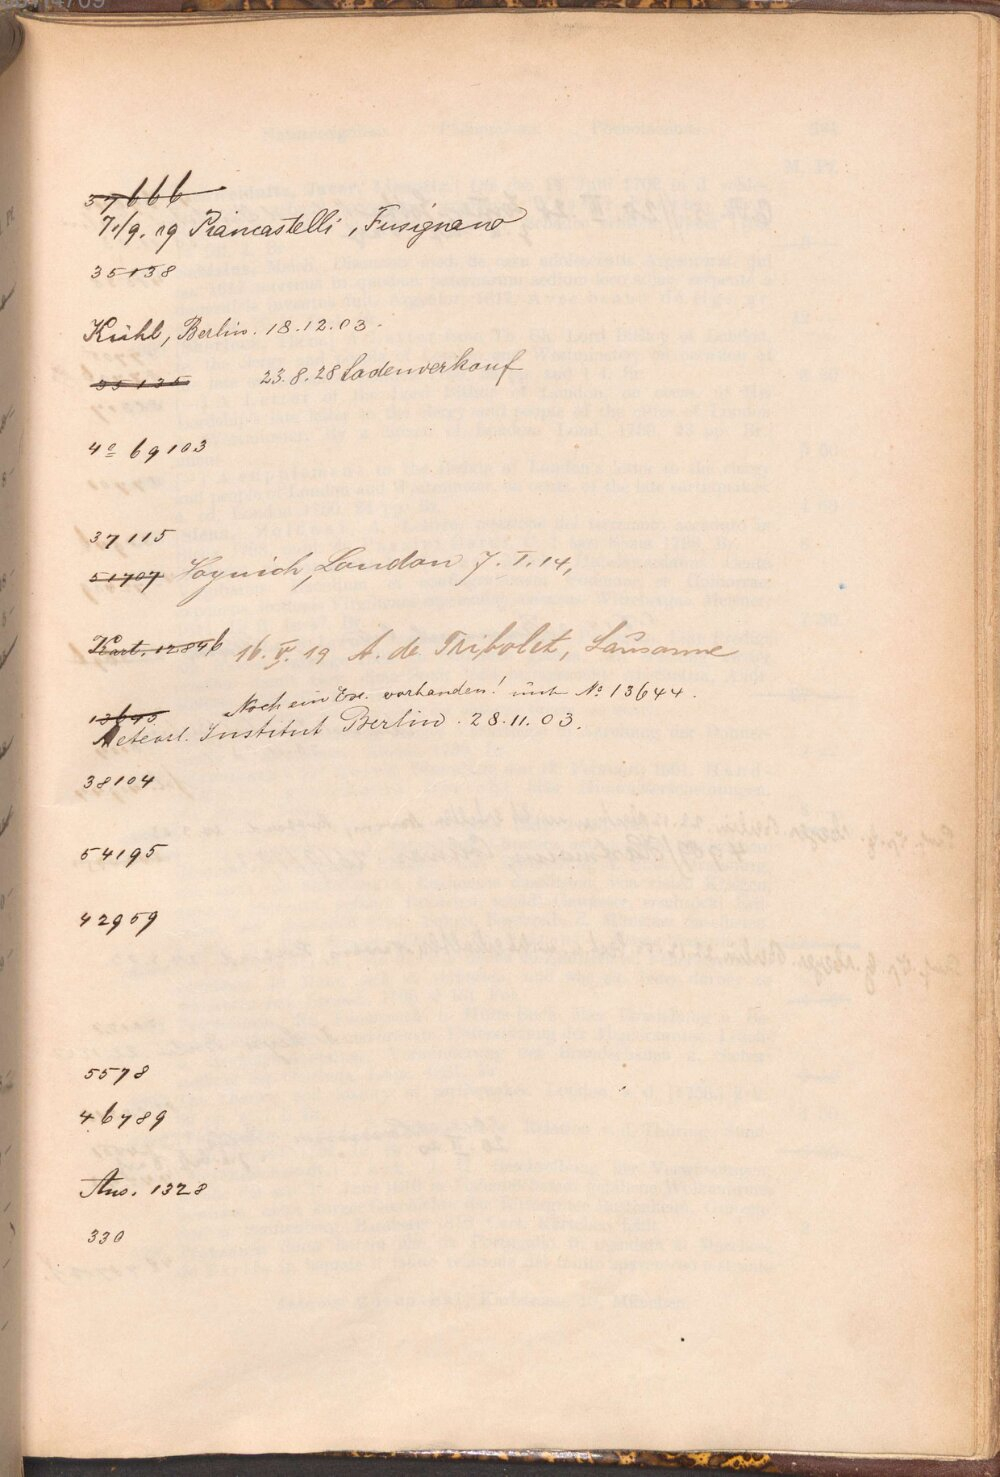 37666
7./9. 19 Piancastelli, Fusignano
35138
Kühl, Berlin. 18.12.03.
35135 23.8.28 Ladenverkauf
4° 69103
37115
51707 Voynich, London 7. I. 14,
Kart. 12846 16. V. 19 A. de Tribolet, Lausanne
Noch ein Ex. vorhanden! unt. No 13644.
13645
Meteorl. Institut Berlin. 28.11.03.
38104
54195
42959
5578
46789
Aus. 1328
330